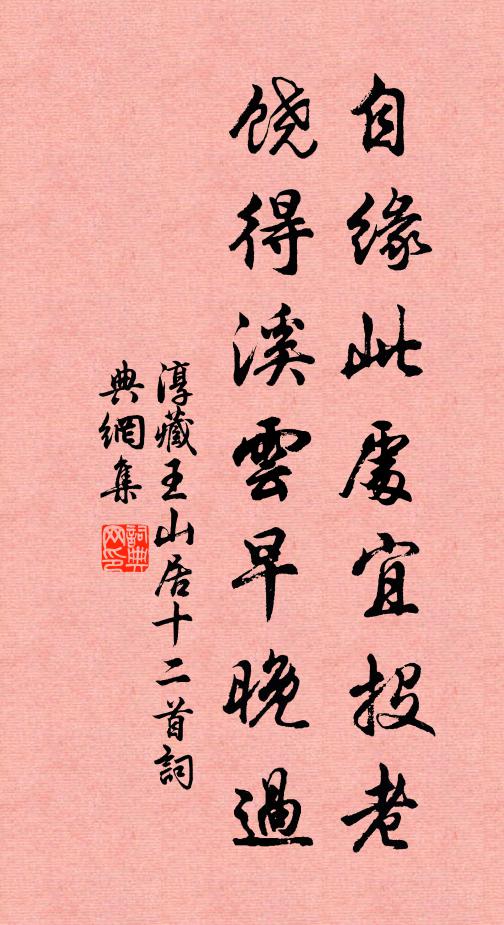 自缘此處宜投老
饶得溪雲早晚過
淳藏王山居十二首詞
典網集
詞典
网印